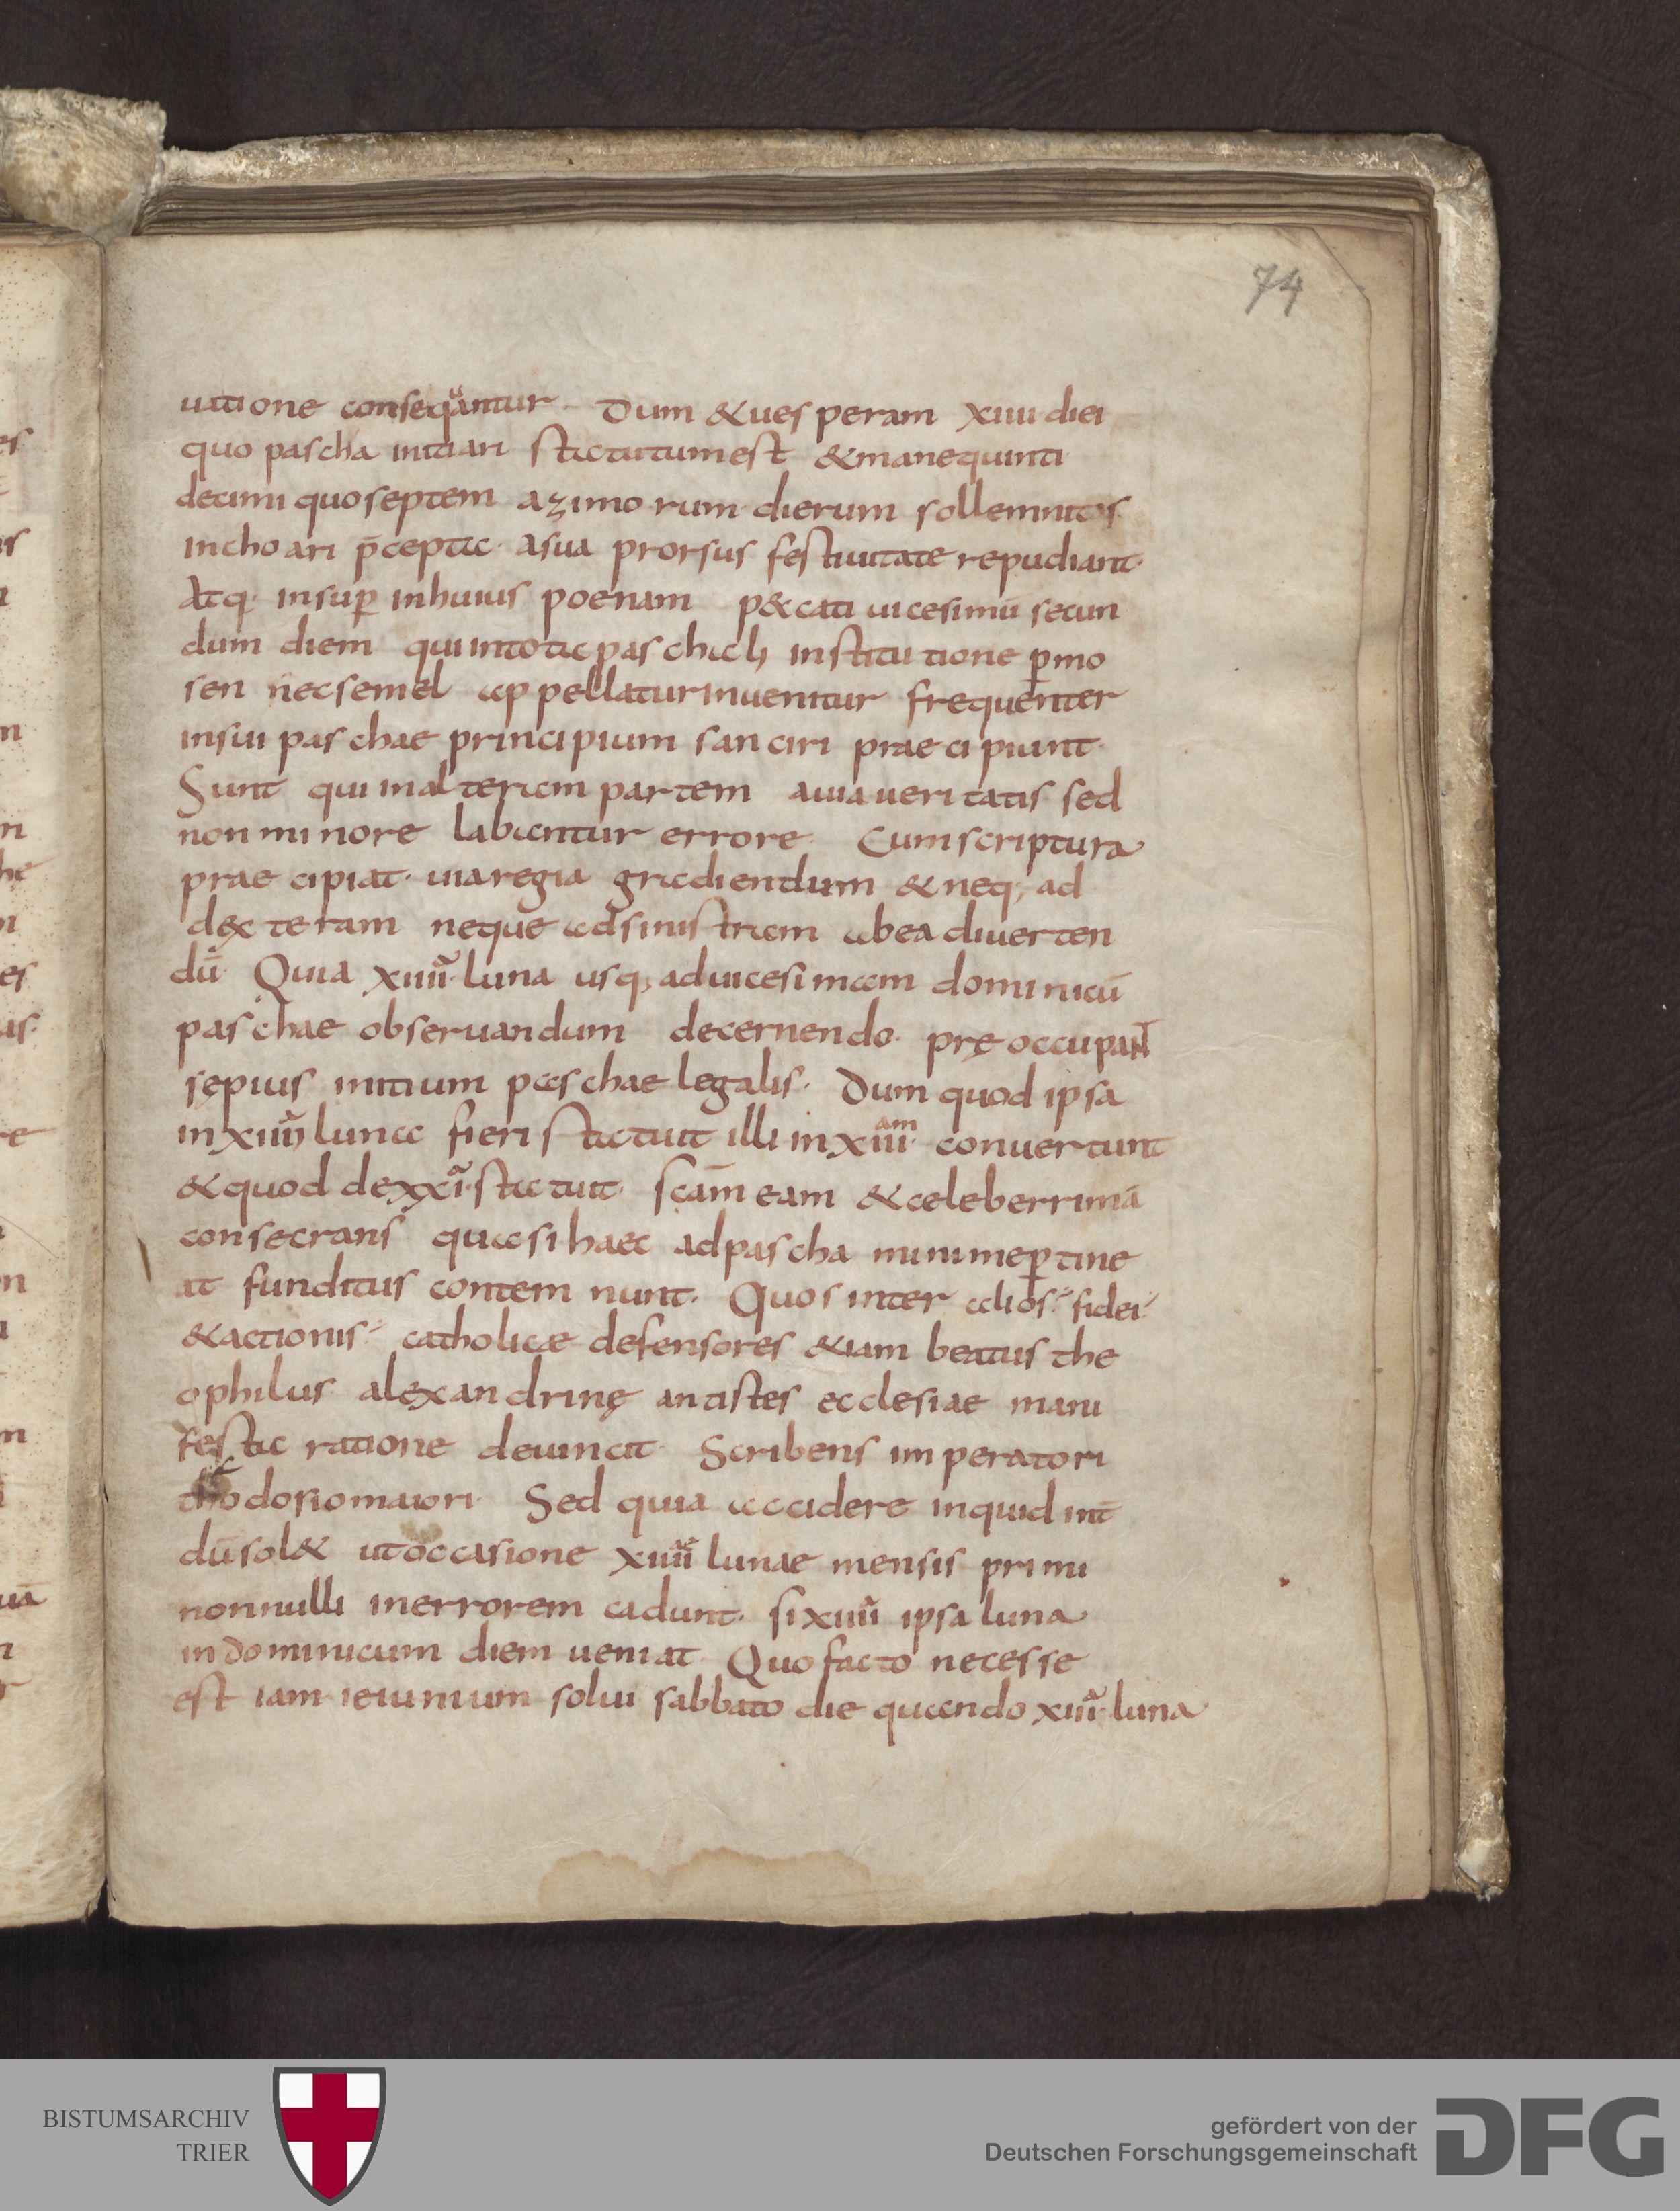 74
uitione conseqͣantur Dum & uesperam xiiii diei
quo pascha initiari statutum est & mane quinti
decimi quo septem azimorum dierum sollemnitas
inchoari p̄cepta a sua prorsus festiuitate repudiant
Atq· insup̱ in huius poenam p&cati uicesimū secun
dum diem qui in tota paschali institutione p̱ mo
sen nec semel appellatur inuenitur frequenter
in sui paschae principium sanciri praecipiunt·
Sunt qui in alteram partem a uia ueritatis sed
non minore labantur errore Cum scriptura
praecipiat· uia regia gradiendum & neq; ad
dexteram neque ad sinistram ab ea diuerten
dū Quia xiiiiͣ· luna usq; ad uicesimam dominicū
paschae obseruandum decernendo· pręoccupant
sępius initium paschae legalis· Dum quod ipsa
in xiiiiͣ luna fieri statuit illi in xiiiᵃᵐ· conuertunt
& quod de xxiͣ· statuit· sc̄am eam & celeberrimā
consecrans quasi haec ad pascha minime p̱tine
at funditus contemnunt· Quos inter alios fidei
& actionis catholicae defensores &iam beatus the
ophilus alexandrinę antistes ecclesiae mani
festa ratione deuincit· Scribens imperatori
theodosio maiori Sed quia accidere inquid int̄
dū sol& ut occasione xiiiiᵃᵉ lunae mensis primi
nonnulli in errorem cadunt· si xiiiiͣ ipsa luna
in dominicum diem ueniat Quo facto necesse
est iam ieiunium solui sabbato die quando xiiiͣ· luna
BISTUMSARCHIV
TRIER
gefördert von der
Deutschen Forschungsgemeinschaft
DFG